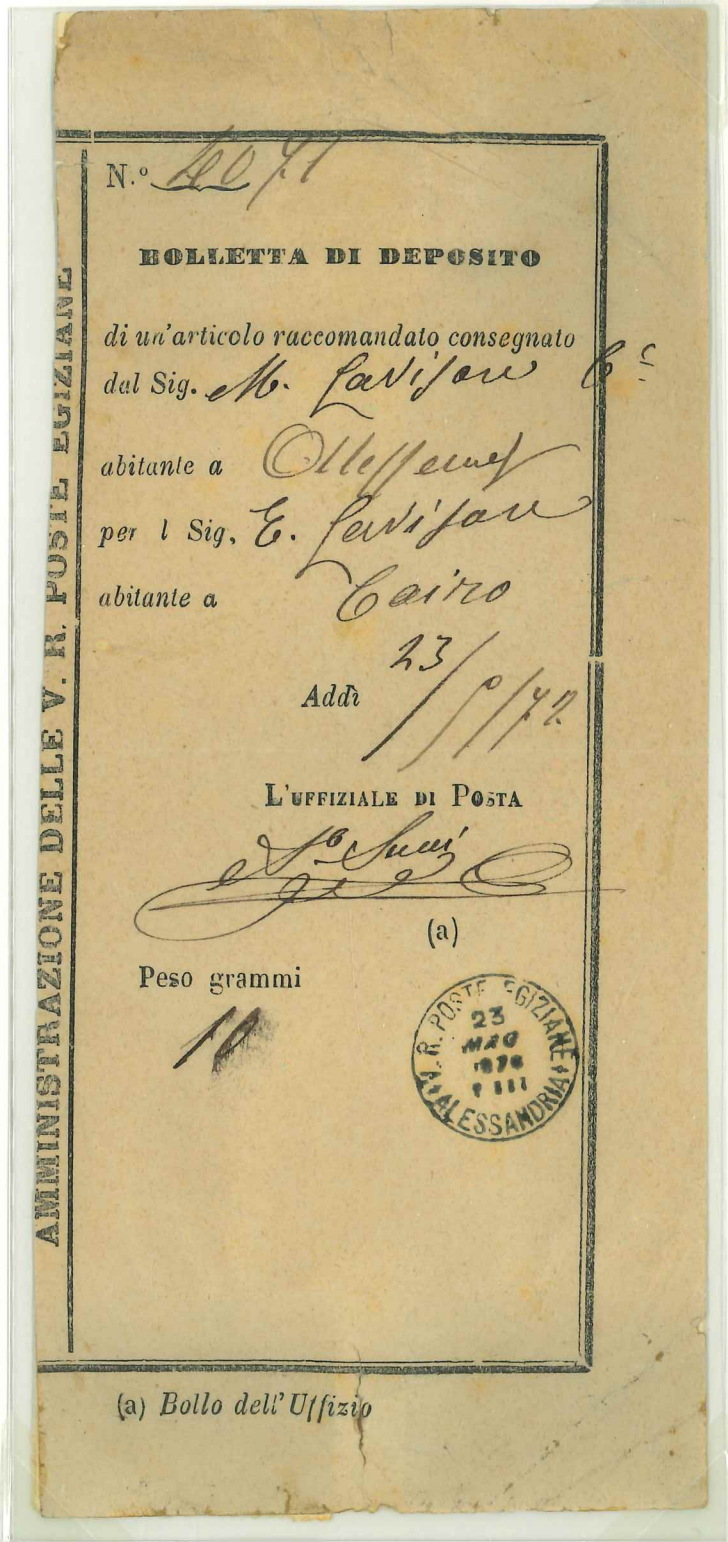 AMMINISTRAZIONE DELLE V. R. POSTE EGIZIANE
N.º 4071
BOLLETTA DI DEPOSITO
di un'articolo raccomandato consegnato
dal Sig. M. Lavison Cie
abitante a
per l Sig. E. Lavison
abitante a Cairo
Addì 23/ /72
L'UFFIZIALE DI POSTA
(a)
Peso grammi
10
V. R. POSTE EGIZIANE
23
MAG
ALESSANDRIA
(a) Bollo dell'Uffizio